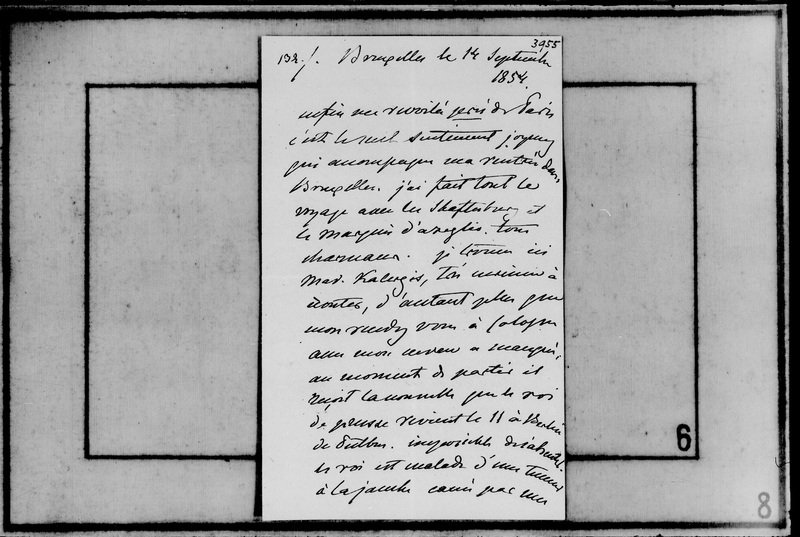 3955
132./. Bruxelles le 14 Septembre
1854.
enfin me revoilà près de Paris
c'est le seul sentiment joyeux
qui accompagne ma rentrée dans
Bruxelles. j'ai fait tout le
voyage avec les Shaftesbury et
le Marquis d'azeglio. tous
charmans. je trouve ici
Mad. Kalergis, très
à
écouter, d'autant plus que
mon rendez vous à Cologne
avec mon neveu a manqué,
au moment de partir il
reçoit la nouvelle que le roi
de prusse revient le 11 à Berlin
de impossible de s'absenter.
le roi est malade d'une tumeur
à la jambe causée par une
6
8